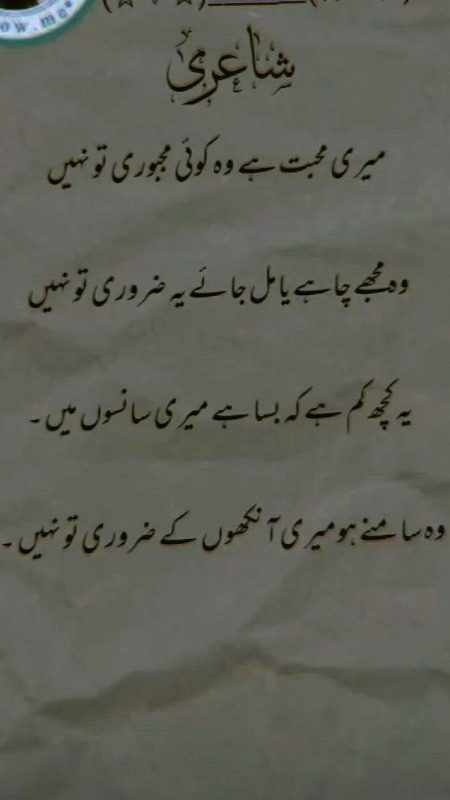 ow.me
شاعری
میری محبت ہے وہ کوئی مجبوری تو نہیں
وہ مجھے چاہے یا مل جائے یہ ضروری تو نہیں
یہ کچھ کم ہے کہ بسا ہے میری سانسوں میں۔
وہ سامنے ہو میری آنکھوں کے ضروری تو نہیں۔